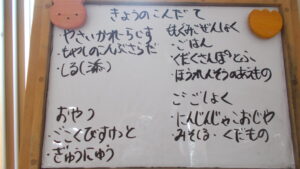 きょうのこんだて
・やさいかれーらいす
・もやしのこんぶさらだ
・しるし(添)
おやつ
・ごこくびすけっと
・ぎゅうにゅう
もぐもぐぜんしょく
・ごはん
・くだくさんぽとふ
・ほうれんそうのあえもの
ごごしょく
・にんじんじゃこおじや
・みそしる・くだもの